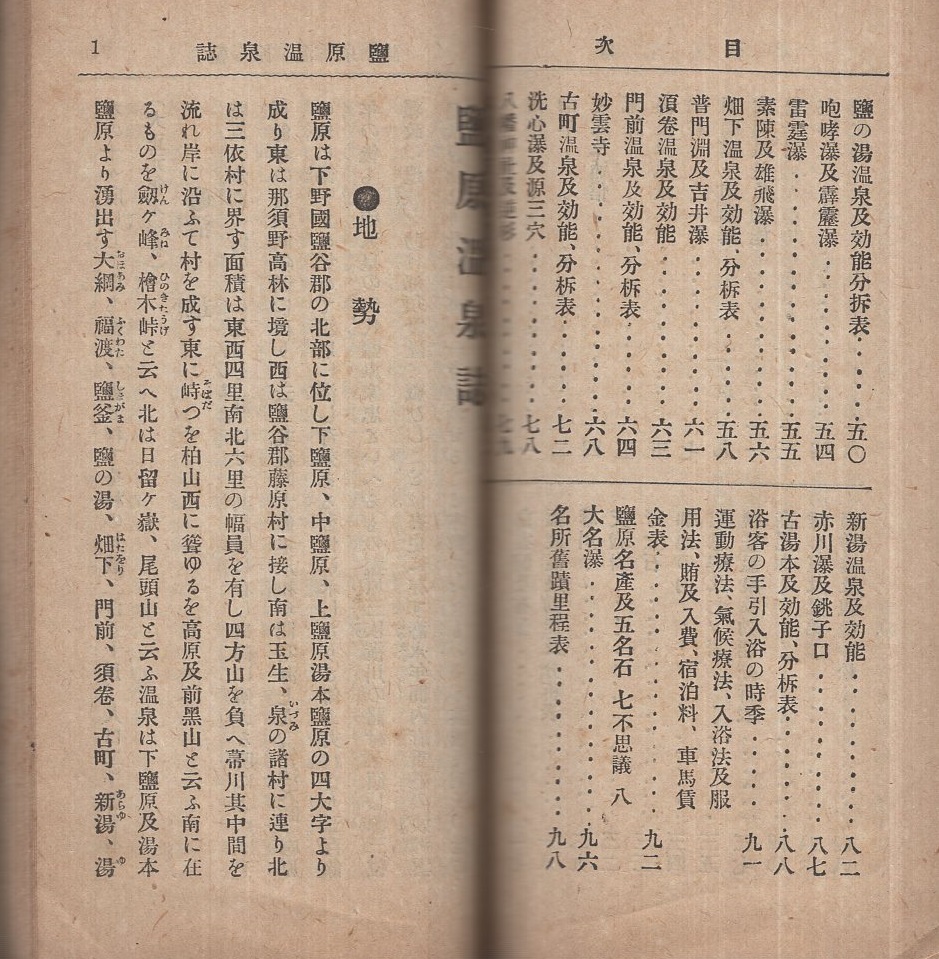 目次
鹽の湯温泉及効能分拆表・・・・五〇
咆哮瀑及霹靂瀑・・・・・・・・五四
雷霆瀑・・・・・・・・・・・・五五
素陳及雄飛瀑・・・・・・・・・五六
畑下温泉及効能、分析表・・・・五八
普門淵及吉井瀑・・・・・・・・六一
須卷温泉及効能・・・・・・・・六三
門前温泉及効能、分析表・・・・六四
妙雲寺・・・・・・・・・・・・六八
古町温泉及効能、分析表・・・・七二
洗心瀑及源三穴・・・・・・・・七八
新湯温泉及効能・・・・・・・・八二
赤川瀑及銚子口・・・・・・・・八七
古湯本及効能、分析表・・・・・八八
浴客の手引入浴の時季・・・・・九一
運動療法、氣候療法、入浴法及服
用法、賄及入費、宿泊料、車馬賃
金表・・・・・・・・・・・・・九二
鹽原名産及五名石 七不思議 八
大名瀑・・・・・・・・・・・・九六
名所舊蹟里程表・・・・・・・・九八
鹽原温泉誌
1
鹽原温泉誌
●地勢
鹽原は下野國鹽谷郡の北部に位し下鹽原、中鹽原、上鹽原湯本鹽原の四大字より
成り東は那須野高林に境し西は鹽谷郡藤原村に接し南は玉生、泉の諸村に連り北
は三依村に界す面積は東西四里南北六里の幅員を有し四方山を負へ帯川其中間を
流れ岸に沿ふて村を成す東に峙つを柏山西に聳ゆるを高原及前黑山と云ふ南に在
るものを劔ケ峰、檜木峠と云へ北は日留ケ嶽、尾頭山と云ふ温泉は下鹽原及湯本
鹽原より湧出す大綱、福渡、鹽釜、鹽の湯、畑下、門前、須卷、古町、新湯、湯